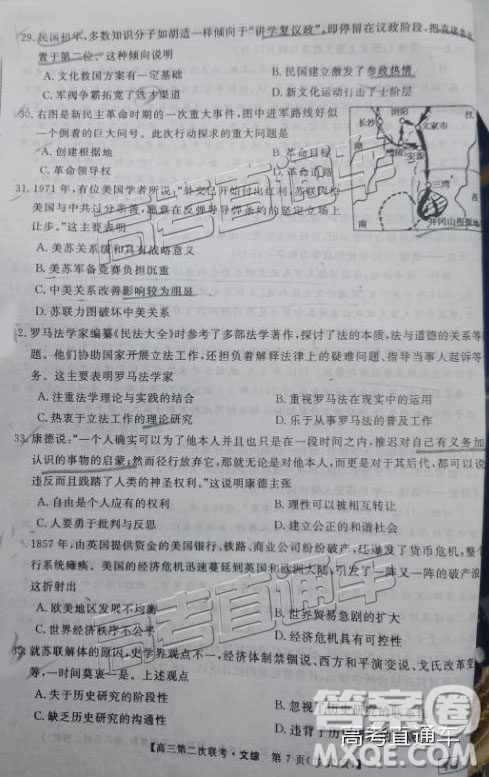 29.民国初年,多数知识分子如胡适一样倾向于“讲学复议政”,即停留在议政阶段,把
置于第二位。这种倾向说明
A. 文化救国方案有一定基础
B. 民国建立激发了参政热情
C. 军阀争霸拓宽了选才渠道
D. 新文化运动打击了士阶层
30. 右图是新民主革命时期的一次重大事件,图中进军路线好似
一个倒着的巨大问号。此次行动探求的重大问题是
A. 创建根据地
B. 革命目标
C. 革命领导权
D. 革命道路
长沙
浏阳
文家市
江
醴陵
湖
三湾
南
西
井冈山根据地
31. 1971年,有位美国学者所说:“外交已开始付出红利,苏联四处
美国与中共过分亲善,愿意在反弹导弹条约的坚定立场上
让步。”这主要表明
A. 美苏关系缓和具有战略意义
B. 美苏军备竞赛负担沉重
C. 中美关系改善影响较为明显
D. 苏联力图破坏中美关系
32. 罗马法学家编纂《民法大全》时参考了多部法学著作,探讨了法的本质,法与道德的关系等
题。他们协助国家开展立法工作,还担负着解释法律上的疑难问题、指导当事人起诉等
务。这主要表明罗马法学家
A. 注重法学理论与实践的结合
B. 重视罗马法的现实作用
C. 热衷于立法工作的理论研究
D. 乐于从事罗马法的普及工作
33. 康德说:“一个人确实可以为了他本人并且也只是在一段时间之内,推迟对自己有义务加
认识的事物的启蒙;然而径行放弃它,那就无论是对他本人,而更是对于其后代,都可以说
违反而且践踏了人类的神圣权利。”这说明康德主张
A. 自由是个人应有的权利
B. 理性可以被相互转让
C. 人要勇于批判与反思
D. 建立公正的和谐社会
1857年,由英国提供资金的美国银行、铁路、商业公司纷纷破产,还遍发了货币危机,整个
行系统瘫痪。美国的经济危机迅速蔓延到英国和欧洲大陆,引发了一阵又一阵的破产浪
这折射出
A. 欧美地区发展不均衡
B. 世界贸易急剧的扩大
C. 世界经济秩序不公平
D. 世界经济具有可控性
35. 就苏联解体的原因,史学界观点不一,经济体制禁锢说、西方和平演变说、戈氏改革
等,一时间莫衷一是。上述现象
A. 失于历史研究的阶段性
C. 缺乏历史研究的沟通性
【高三第二次联考·文综 第7页
高考直通车
高考直通车
高考直通车
答案圈
MXQE.COM